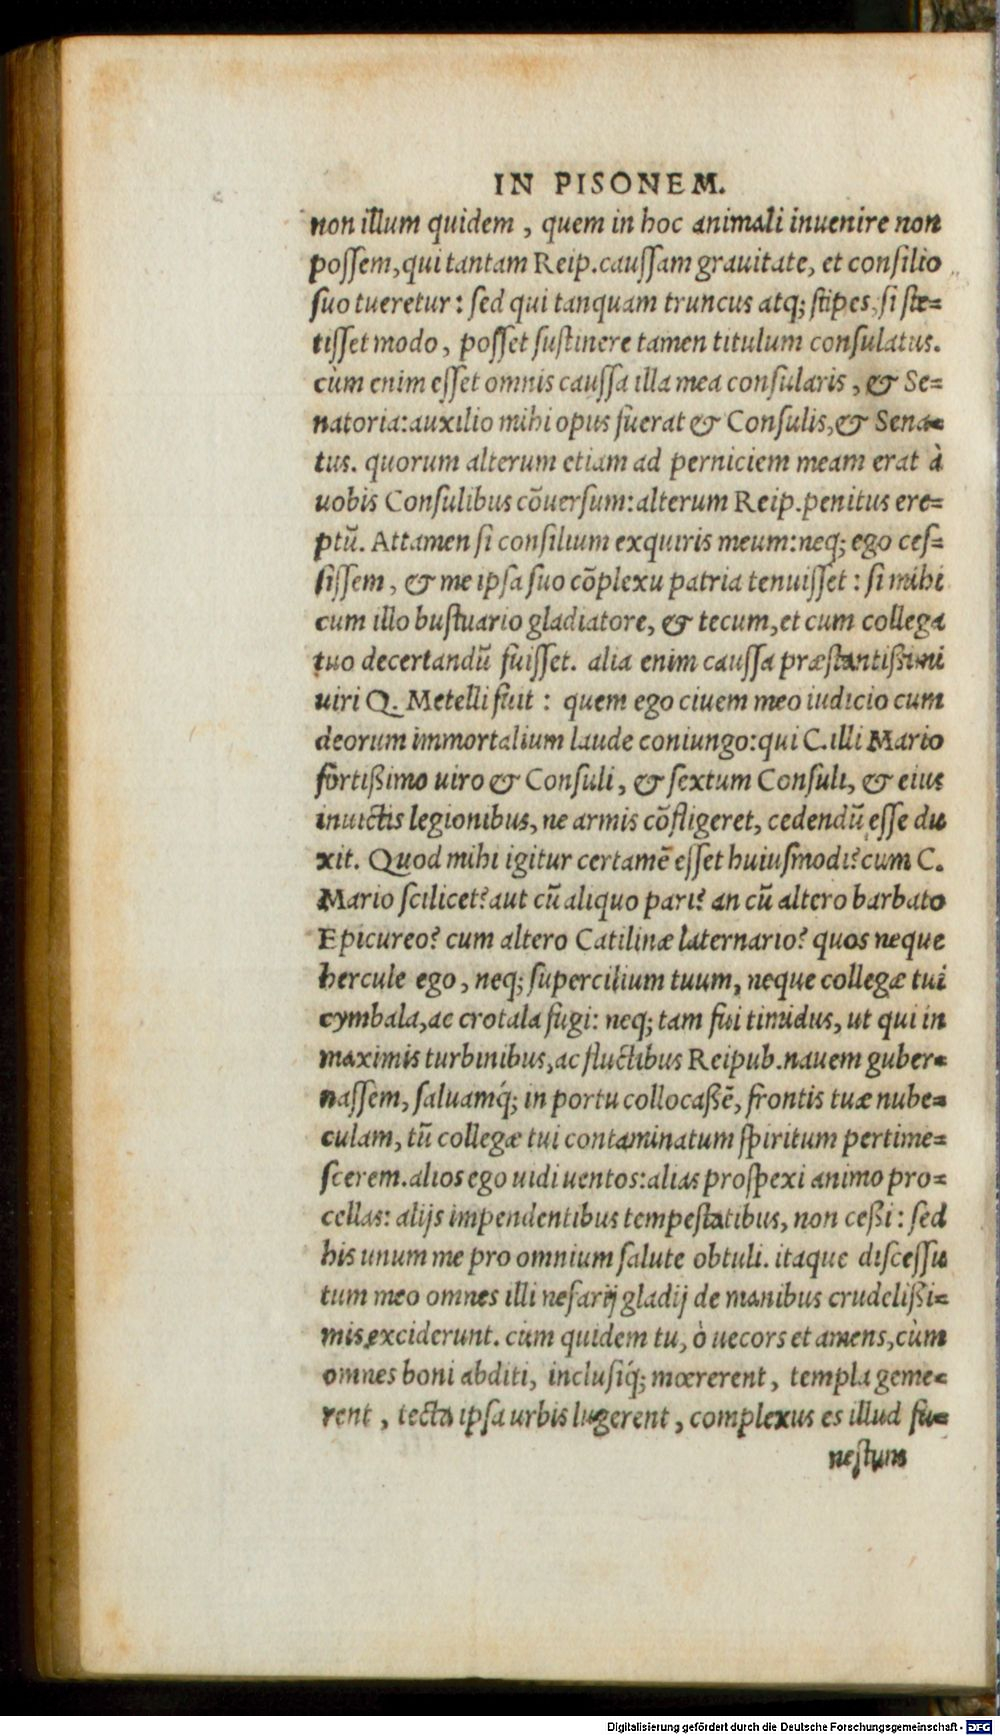 IN PISONEM.
non illum quidem, quem in hoc animali inuenire non
possem, qui tantam Reip. caussam grauitate, et consilio
suo tueretur: sed qui tanquam truncus atq; stipes, si ste-
tisset modo, posset sustinere tamen titulum consulatus.
cùm enim esset omnis caussa illa mea consularis, & Se-
natoria: auxilio mihi opus fuerat & Consulis, & Sena-
tus. quorum alterum etiam ad perniciem meam erat à
uobis Consulibus cōuersum: alterum Reip. penitus ere-
ptū. Attamen si consilium exquiris meum: neq; ego ces-
sissem, & me ipsa suo cōplexu patria tenuisset: si mihi
cum illo bustuario gladiatore, & tecum, et cum collega
tuo decertandū fuisset. alia enim caussa præstantißimi
uiri Q. Metelli fuit: quem ego ciuem meo iudicio cum
deorum immortalium laude coniungo: qui C. illi Mario
fortißimo uiro & Consuli, & sextum Consuli, & eius
inuictis legionibus, ne armis cōfligeret, cedendū esse du
xit. Quod mihi igitur certamē esset huiusmodi? cum C.
Mario scilicet? aut cū aliquo pari? an cū altero barbato
Epicureo? cum altero Catilinæ laternario? quos neque
hercule ego, neq; supercilium tuum, neque collegæ tui
cymbala, ac crotala fugi: neq; tam fui timidus, ut qui in
maximis turbinibus, ac fluctibus Reipub. nauem guber-
nassem, saluamq́; in portu collocaßē, frontis tuæ nube-
culam, tū collegæ tui contaminatum spiritum pertime-
scerem. alios ego uidi uentos: alias prospexi animo pro-
cellas: alijs impendentibus tempestatibus, non ceßi: sed
his unum me pro omnium salute obtuli. itaque discessu
tum meo omnes illi nefarij gladij de manibus crudelißi-
mis exciderunt. cùm quidem tu, ò uecors et amens, cùm
omnes boni abditi, inclusiq́; mœrerent, templa geme-
rent, tecta ipsa urbis lugerent, complexus es illud fu-
nestum
Digitalisierung gefördert durch die Deutsche Forschungsgemeinschaft - DFG